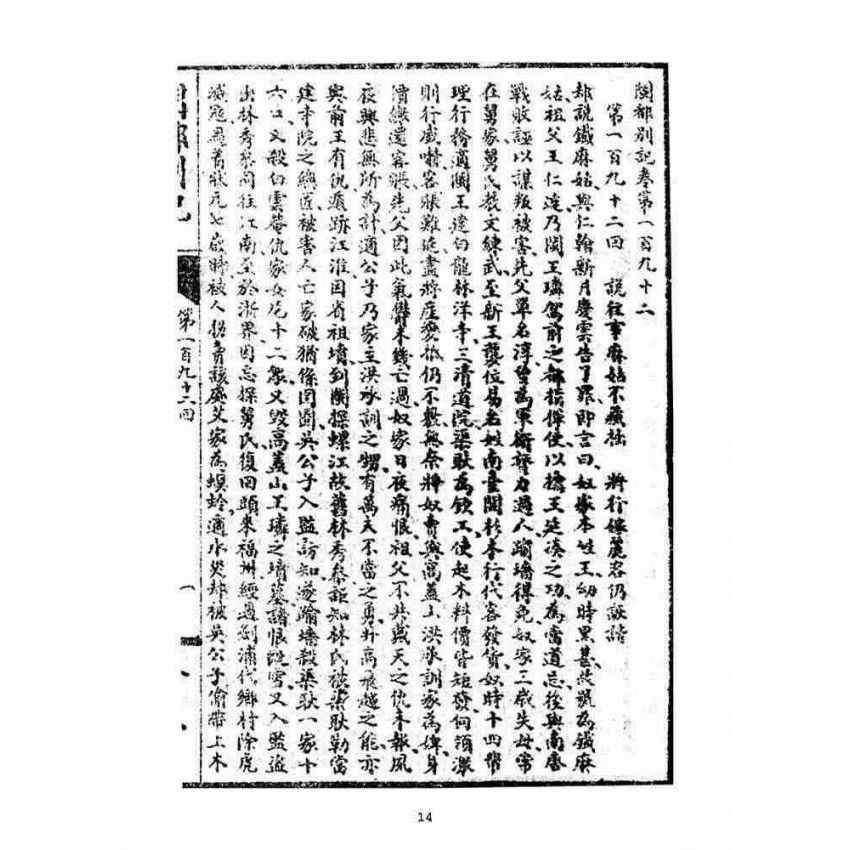 閩都別記卷第一百九十二
第一百九十二回　說往事麻姑不藏拙　將行樣麗容仍詼諧
却說鐵麻姑與仁翰新月慶雲告了罪即言曰奴家本姓王幼時黑甚然號為鐵麻
姑祖父王仁達乃閩王璘駕前之都指揮使以擒王延禀之功為當道忌後與南唐
戰敗誣以謀叛被害先父單名淳曾為軍衛膂力過人踰墻得免奴家三歲失母常
在舅家舅氏教文練武至新王襲位易名姓南臺開杉木行代客發貨奴時十四幫
理行務適閩王建白龍林洋寺三清道院渠耿為欽工使起木料價皆短發何須濕
則行盛噴客賬難延盡將產變抵仍不敷無奈將奴賣與高蓋上洪承訓家為婢身
價繳還客賬先父因此氣鬱未幾亡過奴家日夜痛恨祖父不共戴天之仇未報夙
夜興悲無所為計適公子乃家主洪承訓之甥有萬夫不當之勇升高飛越之能亦
與前王有仇遁跡江淮因省祖墳到閩探螺江故舊林秀泰詎知林氏被渠耿勒當
建寺院之總匠被害人亡家破猶係囹圄吳公子入監訪知遂踰墻殺渠耿一家十
六口又殺白雲菴仇家女尼十二眾又毀高蓋山王璘之墳墓諸恨既雪又入監盜
出林秀泰同往江南至於浙界因忘探舅氏復回頭來福州經過劍浦代鄉村除虎
滅寇為首林尼七歲時被人拐賣該處艾家為螟蛉適水災却被吳公子偷帶上木
閩都別記
第一百九十二回
一
14